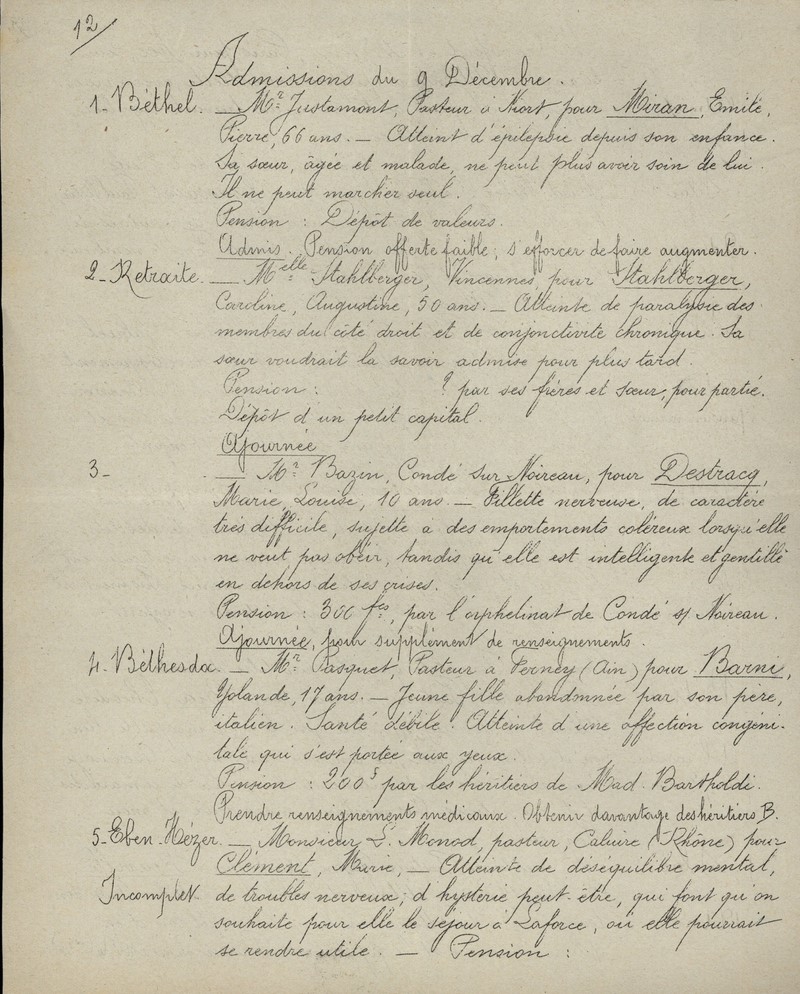 12/
Admissions du 9 Décembre.
1- Béthel. — Mr. Justamont, Pasteur à Niort, pour Miran, Emile,
Pierre, 66 ans. — Atteint d'épilepsie depuis son enfance.
Sa sœur, âgée et malade, ne peut plus avoir soin de lui.
Il ne peut marcher seul.
Pension : Dépôt de valeurs.
Admis. Pension offerte faible; s'efforcer de faire augmenter.
2- Retraite. — Melle Stahlberger, Vincennes, pour Stahlberger,
Caroline, Augustine, 50 ans. — Atteinte de paralysie des
membres du côté droit et de conjonctivite chronique. Sa
sœur voudrait la savoir admise pour plus tard.
Pension : ? par ses frères et sœur, pour partie.
Dépôt d'un petit capital.
Ajournée
3- — Mr. Bazin, Condé sur Noireau, pour Destracq,
Marie, Louise, 10 ans. — Fillette nerveuse, de caractère
très difficile, sujette à des emportements coléreux lorsqu'elle
ne veut pas obéir, tandis qu'elle est intelligente et gentille
en dehors de ses crises.
Pension : 300 fcs, par l'orphelinat de Condé s/ Noireau.
Ajournée, pour supplément de renseignements.
4- Béthesda. — Mr. Pasquet, Pasteur à Ferney (Ain) pour Barni,
Yolande, 17 ans. — Jeune fille abandonnée par son père,
italien. Santé débile. Atteinte d'une affection congéni-
tale qui s'est portée aux yeux.
Pension : 200f par les héritiers de Mad. Bartholdi.
Prendre renseignements médicaux. Obtenir davantage des héritiers B.
5- Eben-Hézer. — Monsieur L. Monod, pasteur, Caluire (Rhône) pour
Clément, Marie, — Atteinte de déséquilibre mental,
Incomplet. de troubles nerveux; d'hystérie peut-être, qui font qu'on
souhaite pour elle le séjour à Laforce, où elle pourrait
se rendre utile. — Pension :